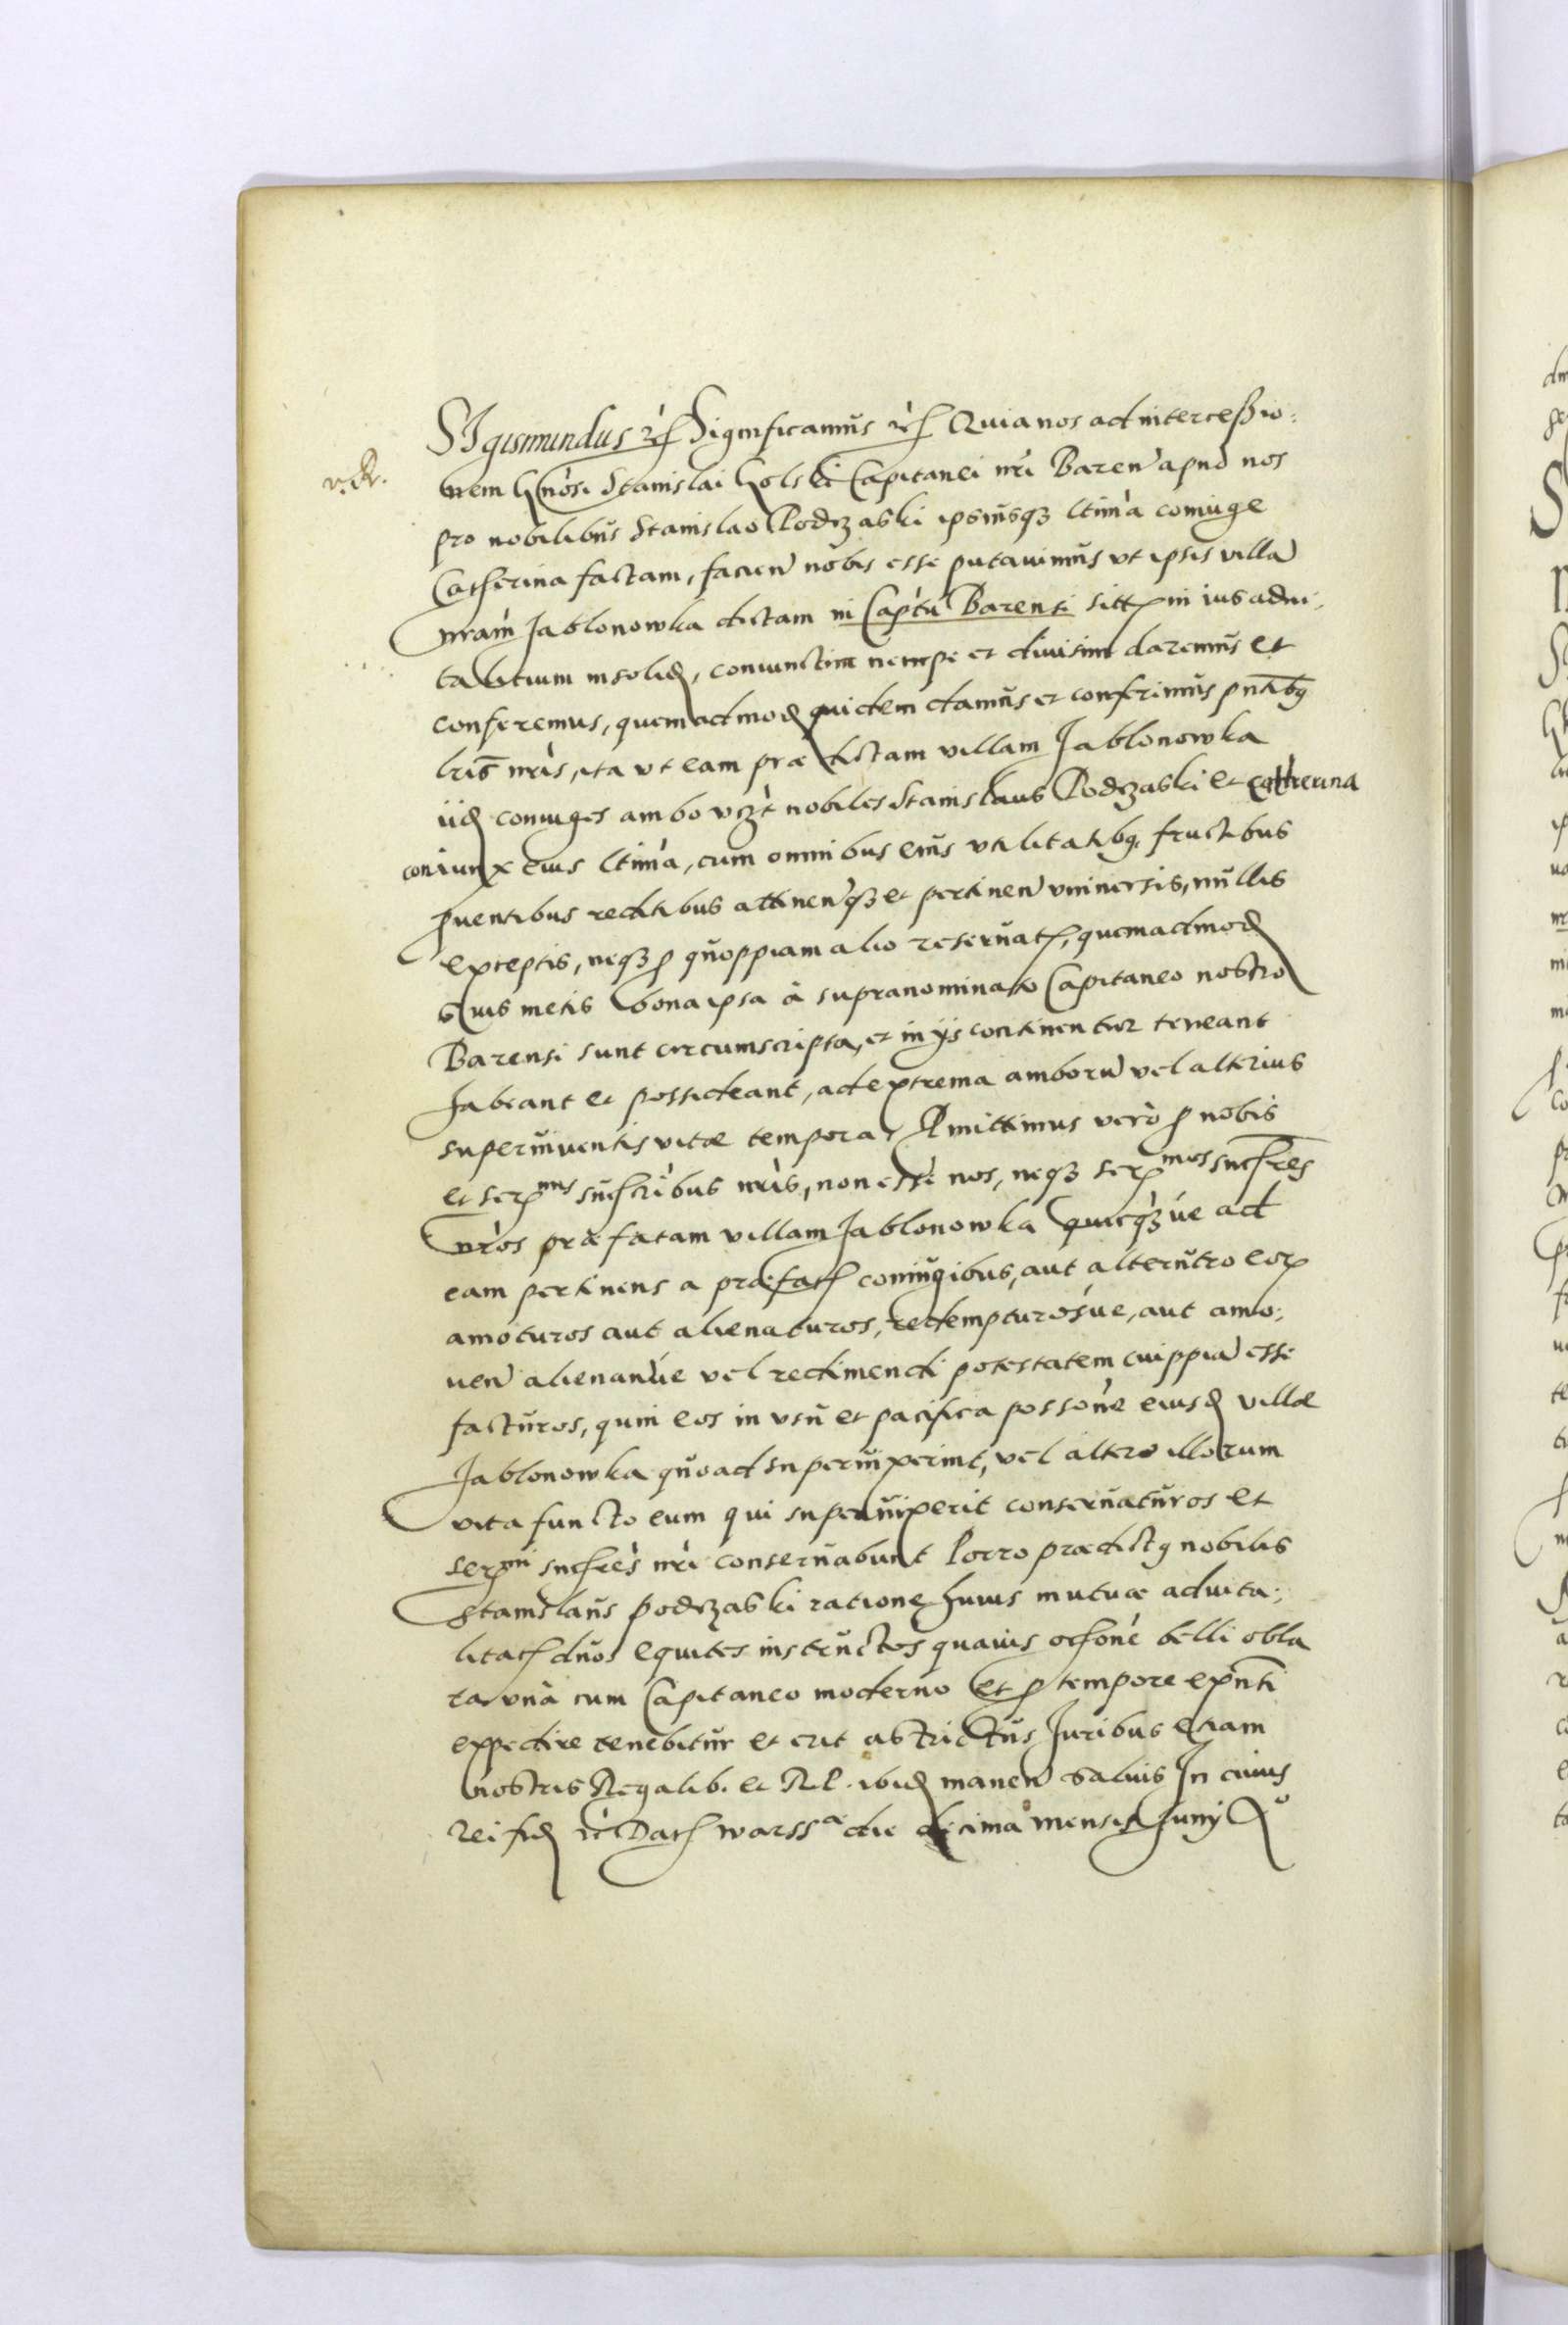 v. R.
SIgismundus etc. Significamus etc. Quia nos ad intercessio-
nem Gnosi Stanislai Golski Capitanei nri Baren apud nos
pro nobilibus Stanislao Podczaski ipsiusq3 ltima coniuge
Catherina factam, facien nobis esse putavimus vt ipsis villa
nram Jablonowka dictam in Captu Barensi sitt in ius advi-
talitium in solid, coniunctim nempe et divisim daremus et
conferemus, quemadmod quidem damus et conferimus pntibg
lris nris, ita vt eam prædictam villam Jablonowka
iid coniuges ambo vczt nobiles Stanislaus Podczaski et Catherina
coniunx eius ltima, cum omnibus eius vtilitatibg fructibus
pventibus reditibus attinenq3 et pertinen vniversis, nullis
exceptis, neq3 p quoppiam alio reservat, quemadmod
suis metis bona ipsa à supranominato Capitaneo nostro
Barensi sunt circumscripta, et in ijs continentur teneant
habeant et possideant, ad extrema amboru vel alterius
superviventis vitæ tempora. Pmittimus vero p nobis
et sermis succribus nris, non esse nos, neq3 sermos succres
nros præfatam villam Jablonowka quicq3ue ad
eam pertinens a præfat coniugibus, aut alterutro eor
amoturos aut alienaturos, redempturosue, aut amo-
uen alienanue vel redimendi potestatem cuippia esse
facturos, quin eos in vsu et pacifica possone eiusd villæ
Jablonowka quoad supervixerint, vel altero illorum
vita functo eum qui supervixerit conservaturos et
sermi succres nri conservabunt Porro prædictg nobilis
Stanislaus Podczaski ratione huius mutuæ advita-
litat duos equites instructos quavis occone belli obla
ta vna cum Capitaneo moderno et p tempore expnti
expedire tenebitur et erit astrictus Juribus etiam
nostris Regalib. et RP. ibid manen salvis In cuius
rei fid etc Dat Warssa die decima mensis Junij Ao